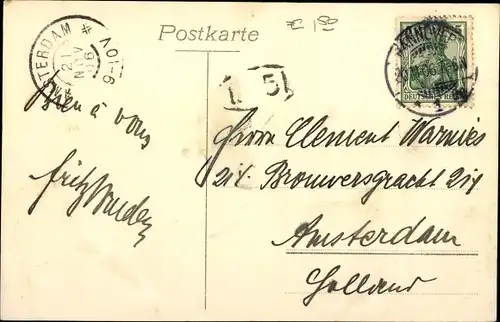 Postkarte
€ 1.50
AMSTERDAM
21
NOV
06
HANNOVER
DEUTSCHES REICH
1
1.5
Bien à vous
Fritz
Herrn Clement Warnies
Brouwersgracht
Amsterdam
Holland